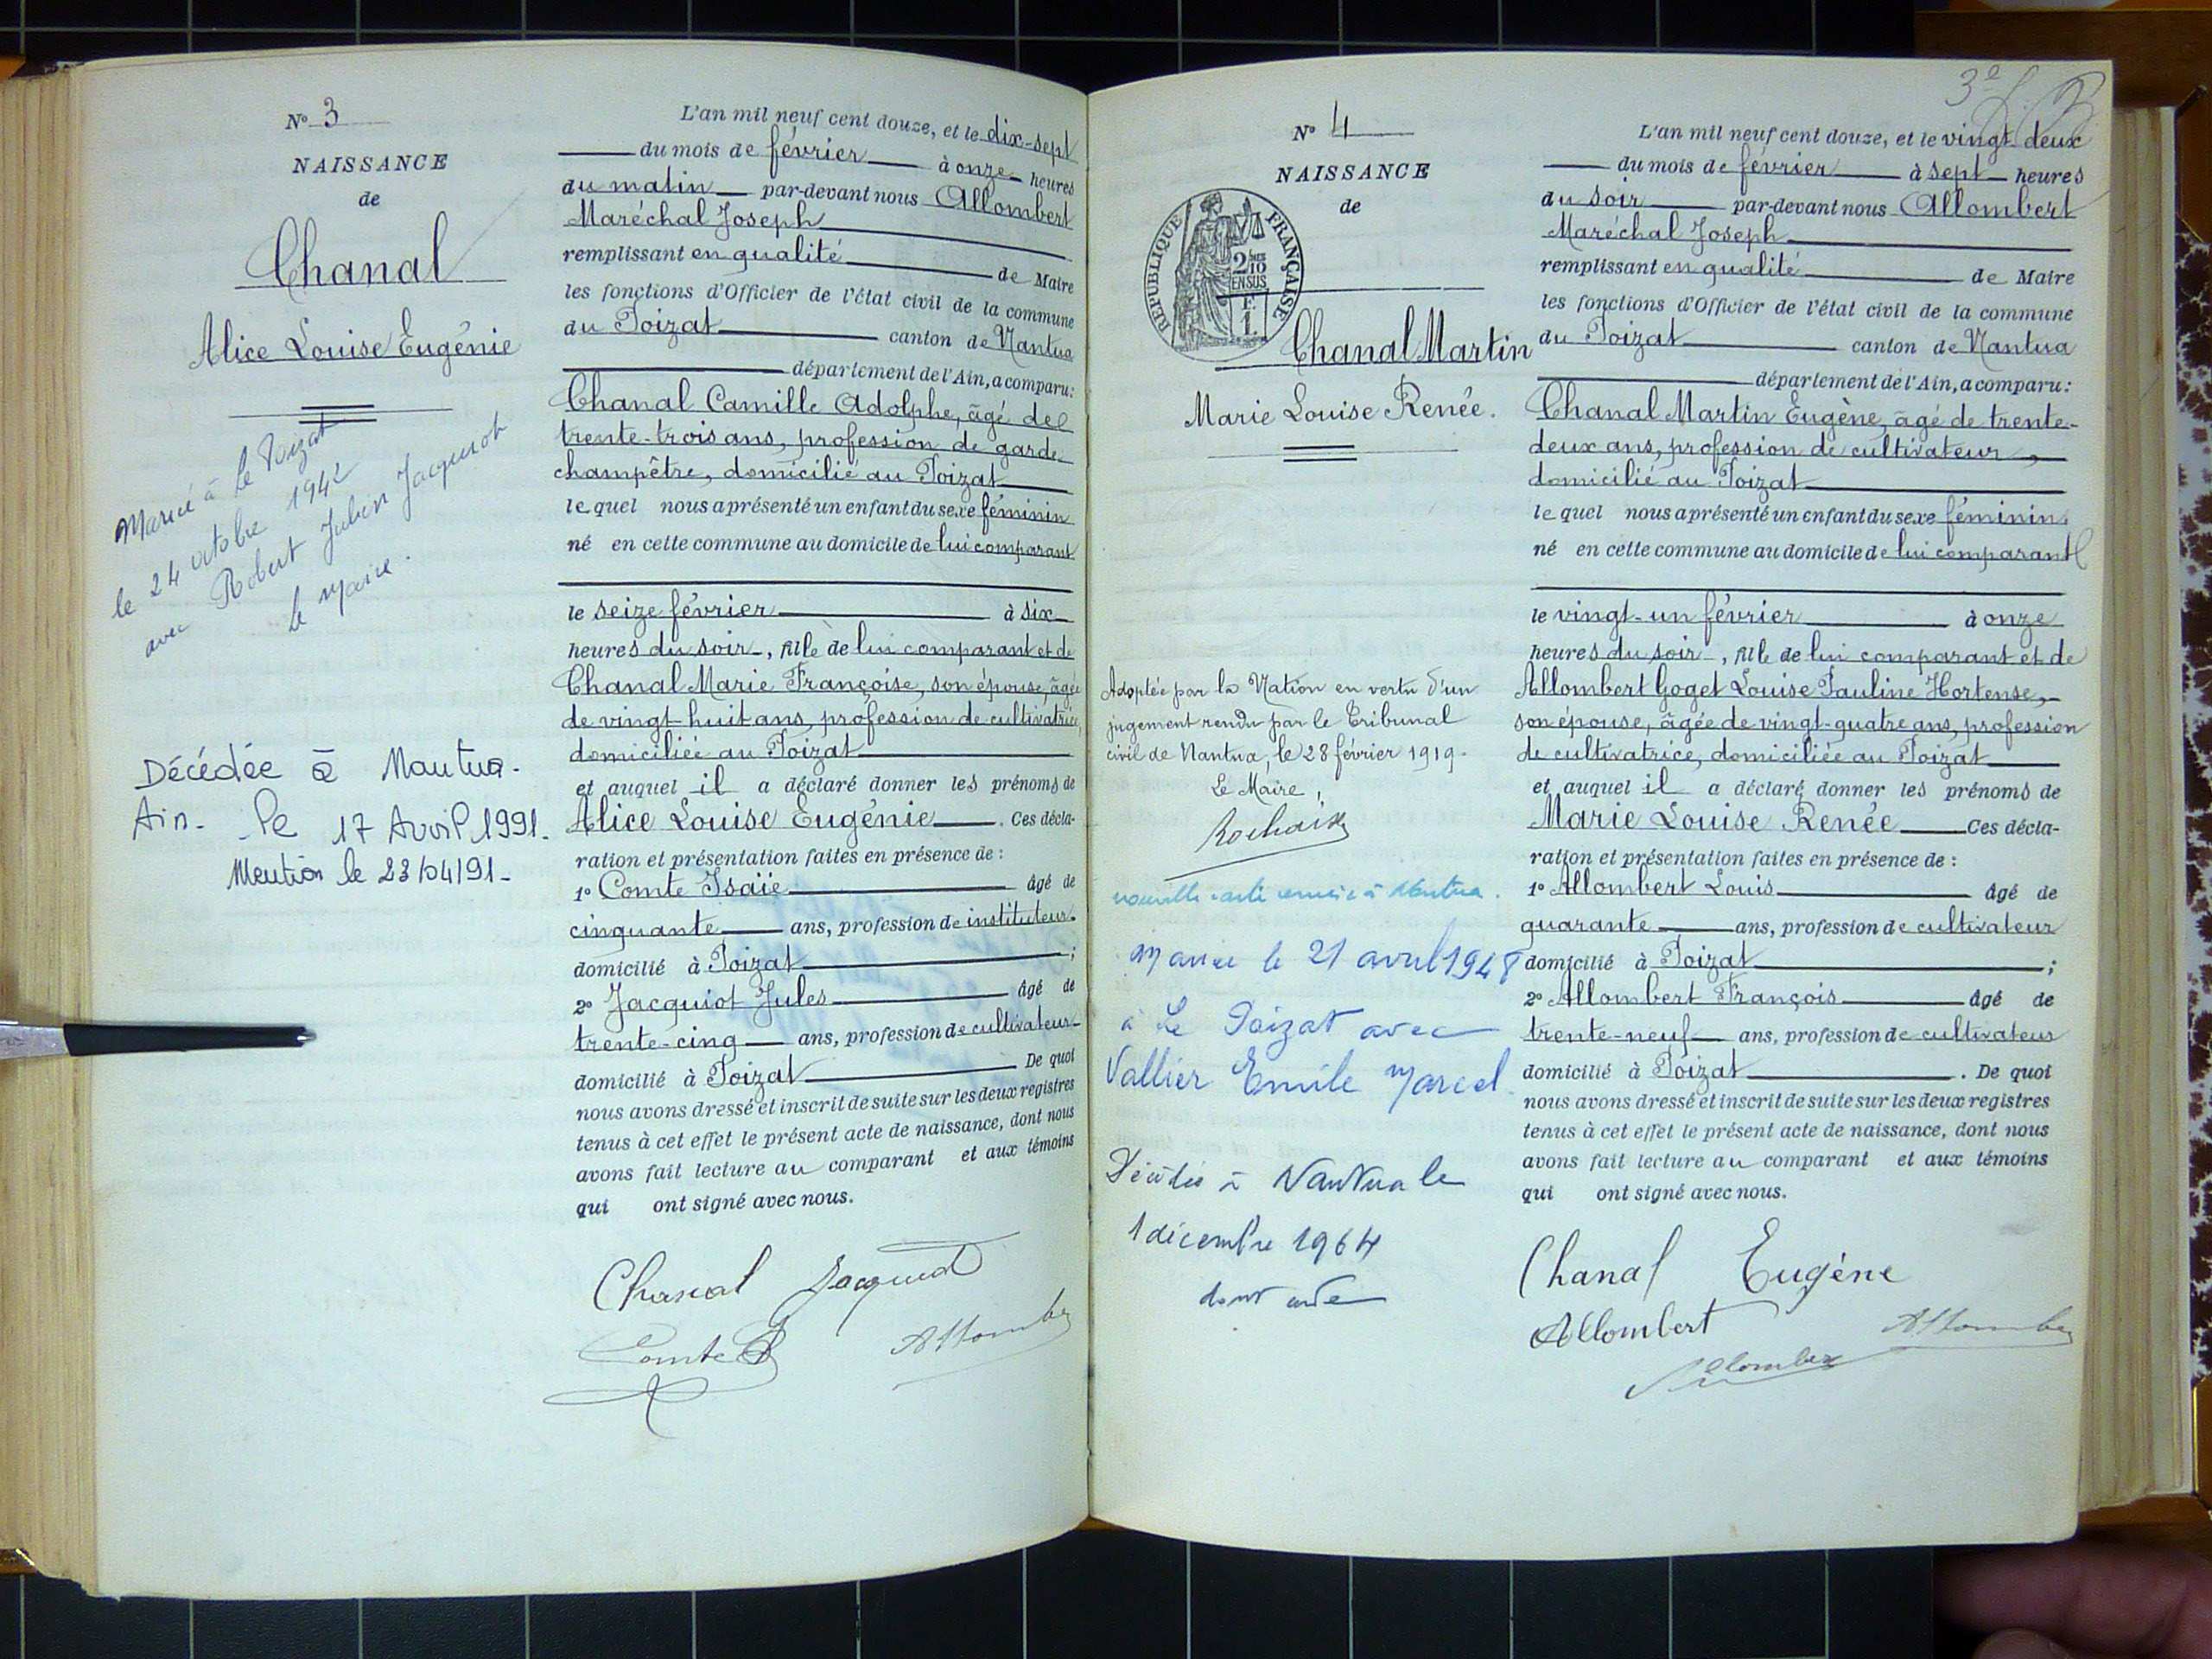 N° 3
NAISSANCE
de
Chanal
Alice Louise Eugénie
Mariée à Le Poizat
le 24 octobre 1942
avec Robert Julien Jacquiot
Le Maire.
Décédée à Nantua-
Ain- le 17 Avril 1991-
Mention le 23/04/91-
L'an mil neuf cent douze, et le dix-sept
du mois de février à onze heures
du matin par-devant nous Allombert
Maréchal Joseph
remplissant en qualité de Maire
les fonctions d'Officier de l'état civil de la commune
du Poizat canton de Nantua
département de l'Ain, a comparu:
Chanal Camille Adolphe, âgé de
trente-trois ans, profession de garde
champêtre, domicilié au Poizat
lequel nous a présenté un enfant du sexe féminin
né en cette commune au domicile de lui comparant
le seize février à six
heures du soir, fille de lui comparant et de
Chanal Marie Françoise, son épouse, âgée
de vingt huit ans, profession de cultivatrice,
domiciliée au Poizat
et auquel il a déclaré donner les prénoms de
Alice Louise Eugénie. Ces décla-
ration et présentation faites en présence de :
1° Comte Isaïe âgé de
cinquante ans, profession de instituteur
domicilié à Poizat ;
2° Jacquiot Jules âgé de
trente-cinq ans, profession de cultivateur
domicilié à Poizat De quoi
nous avons dressé et inscrit de suite sur les deux registres
tenus à cet effet le présent acte de naissance, dont nous
avons fait lecture au comparant et aux témoins
qui ont signé avec nous.
Chanal Jacquiot
Comte Allombert
3e
N° 4
NAISSANCE
de
REPUBLIQUE FRANÇAISE
2/10
EN SUS
F.
1.
Chanal Martin
Marie Louise Renée.
Adoptée par la Nation en vertu d'un
jugement rendu par le Tribunal
civil de Nantua, le 28 février 1919.
Le Maire,
Rochaix
nouvelle carte à Nantua.
Mariée le 21 avril 1948
à Le Poizat avec
Vallier Emile Marcel
Décédée à Nantua le
1 décembre 1964
dont acte
L'an mil neuf cent douze, et le vingt-deux
du mois de février à sept heures
du soir par-devant nous Allombert
Maréchal Joseph
remplissant en qualité de Maire
les fonctions d'Officier de l'état civil de la commune
du Poizat canton de Nantua
département de l'Ain, a comparu:
Chanal Martin Eugène, âgé de trente-
deux ans, profession de cultivateur,
domicilié au Poizat
lequel nous a présenté un enfant du sexe féminin
né en cette commune au domicile de lui comparant
le vingt-un février à onze
heures du soir, fille de lui comparant et de
Allombert Goget Louise Pauline Hortense,
son épouse, âgée de vingt-quatre ans, profession
de cultivatrice, domiciliée au Poizat
et auquel il a déclaré donner les prénoms de
Marie Louise Renée Ces décla-
ration et présentation faites en présence de :
1° Allombert Louis âgé de
quarante ans, profession de cultivateur
domicilié à Poizat ;
2° Allombert François âgé de
trente-neuf ans, profession de cultivateur
domicilié à Poizat. De quoi
nous avons dressé et inscrit de suite sur les deux registres
tenus à cet effet le présent acte de naissance, dont nous
avons fait lecture au comparant et aux témoins
qui ont signé avec nous.
Chanal Eugène
Allombert Allombert
Allombert